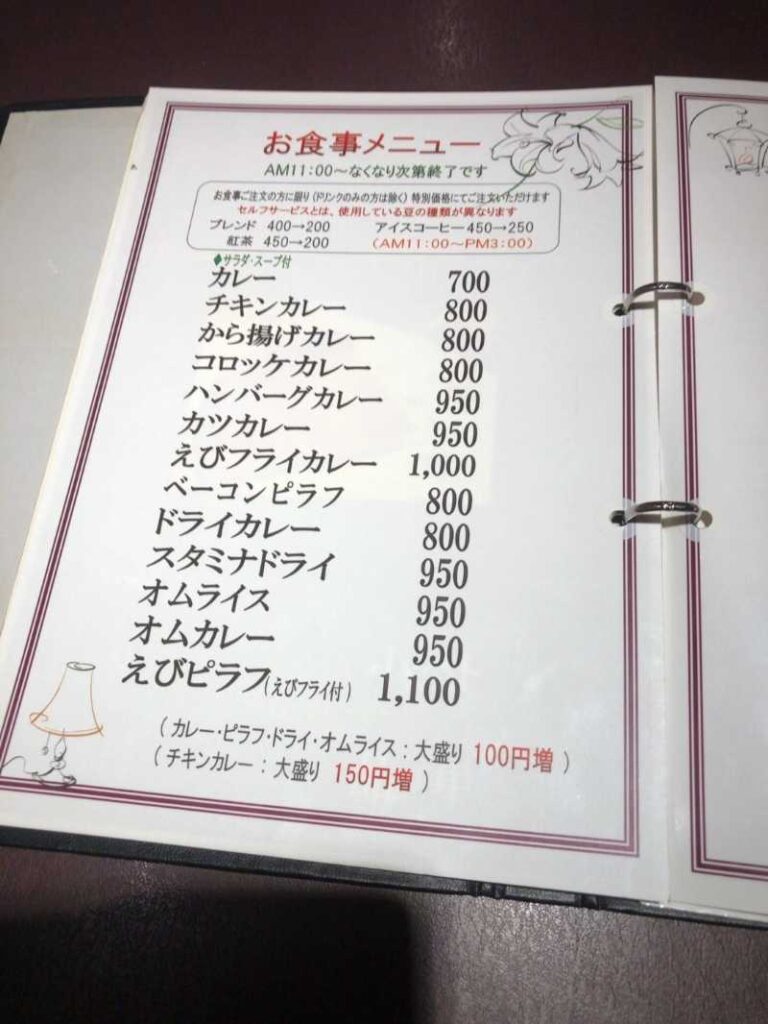 お食事メニュー
AM11:00～なくなり次第終了です
お食事ご注文の方に限り(ドリンクのみの方は除く)特別価格にてご注文いただけます
セルフサービスとは、使用している豆の種類が異なります
ブレンド 400→200 アイスコーヒー450→250
紅茶 450→200 (AM11:00～PM3:00)
♦サラダ・スープ付
カレー 700
チキンカレー 800
から揚げカレー 800
コロッケカレー 800
ハンバーグカレー 950
カツカレー 950
えびフライカレー 1,000
ベーコンピラフ 800
ドライカレー 800
スタミナドライ 950
オムライス 950
オムカレー 950
えびピラフ(えびフライ付) 1,100
(カレー・ピラフ・ドライ・オムライス:大盛り 100円増)
(チキンカレー:大盛り 150円増)